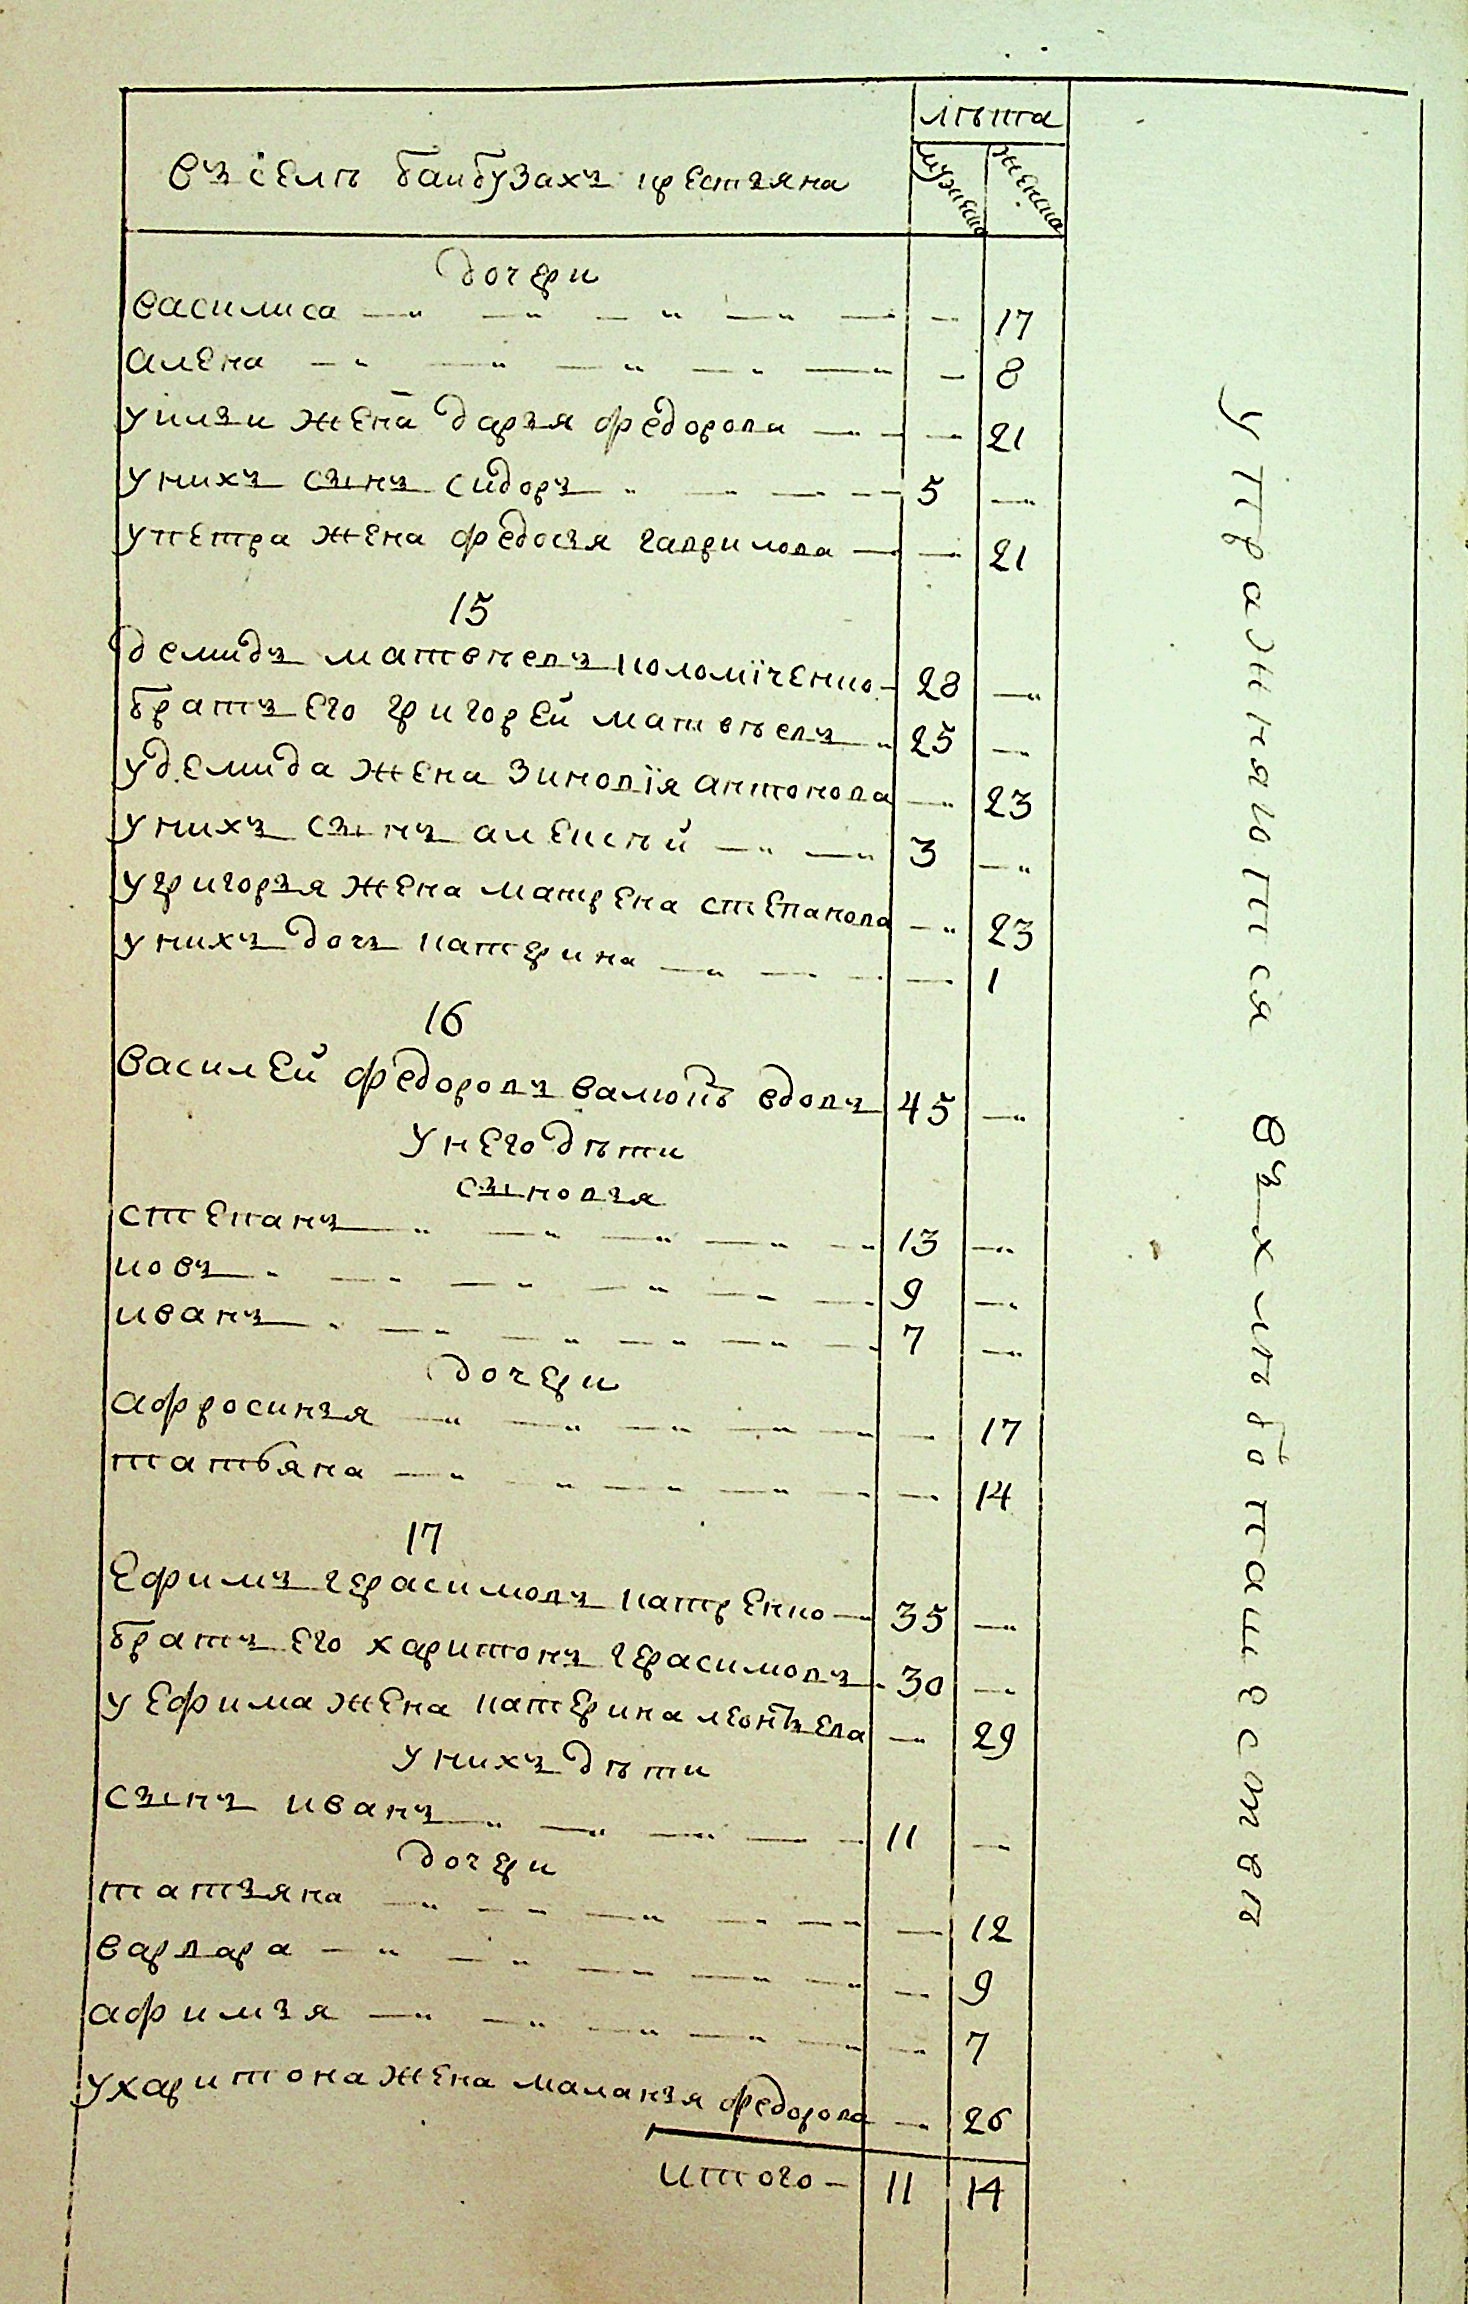 лѣта
въ селѣ баибузахъ крестьяна
мужеска
женска
дочери
василиса 17
алена 8
у илъи жена даръя федорова 21
у нихъ сынъ сидоръ 5
у петра жена федосъя гаврилова 21
15
демидъ матвѣевъ коломїченко 28
братъ его григорей матвѣевъ 25
у демида жена зиновїя антонова 23
у нихъ сынъ алексѣй 3
у григоръя жена матрена степанова 23
у нихъ дочъ катерина 1
16
василей федоровъ валюкъ вдовъ 45
у него дѣти
сыновъя
степанъ 13
иовъ 9
иванъ 7
дочери
афросинъя 17
татьяна 14
17
ефимъ герасимовъ катренко 35
братъ его харитонъ герасимовъ 30
у ефима жена катерина леонтъева 29
у нихъ дѣти
сынъ иванъ 11
дочери
татъяна 12
варвара 9
афимъя 7
у харитона жена маланъя федорова 26
итого 11 14
упражняются въ хлѣбопашествѣ